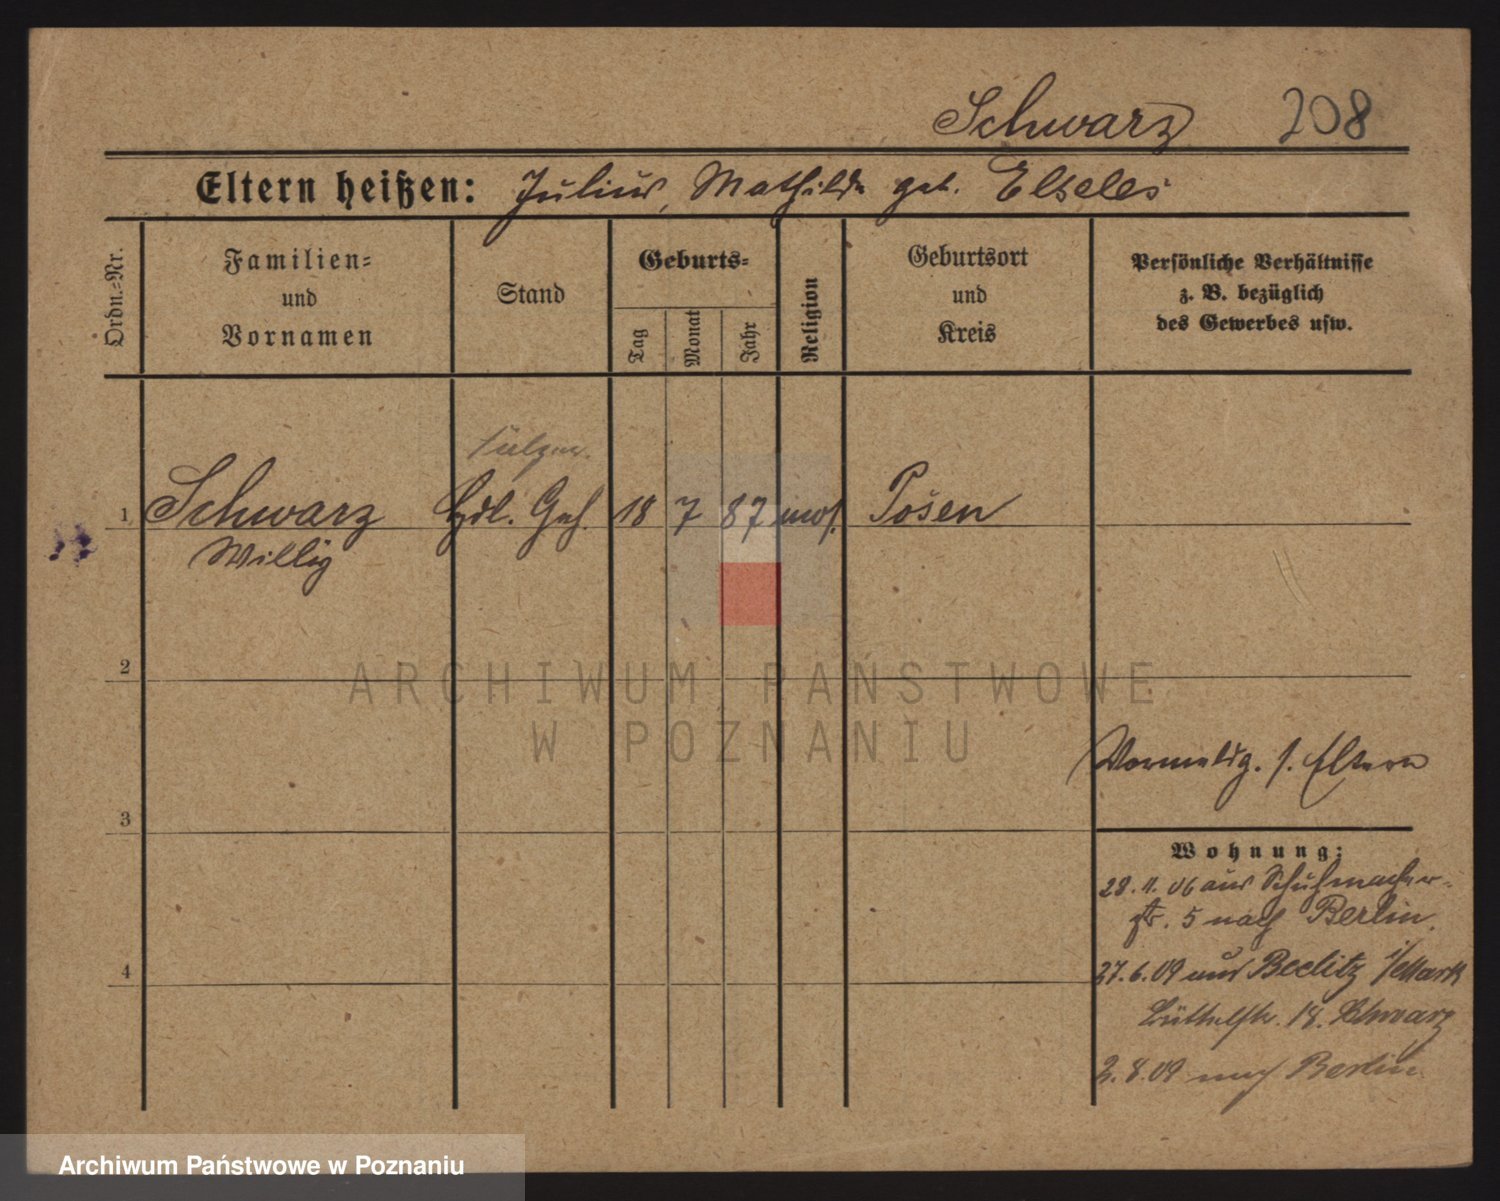 Schwarz 208
Eltern heißen: Julius, Mathilde geb. Elseles
Ordn.-Nr.
Familien-
und
Vornamen
Stand
Geburts-
Tag
Monat
Jahr
Religion
Geburtsort
und
Kreis
Persönliche Verhältnisse
z. B. bezüglich
des Gewerbes usw.
1 Schwarz Hdl. Geh. 18 7 87 mos. Posen
Willig
2
ARCHIWUM PAŃSTWOWE
W POZNANIU
Vormeldg. s. Eltern
3
Wohnung:
28. 11. 06 aus Schuhmacher-
str. 5 nach Berlin.
4
27. 6. 09 aus Beelitz i/Mark
Büttelstr. 18. Schwarz
2. 8. 09 nach Berlin
Archiwum Państwowe w Poznaniu